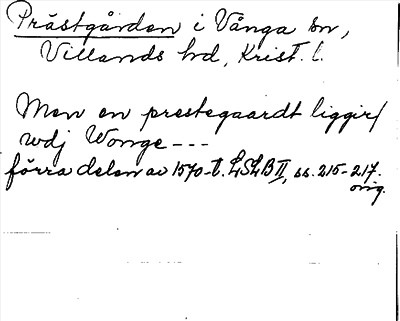 Prästgården i Vånga sn,
Villands hd, Krist. l.
Men en prestegaardt liggir/
wdj Wonge ---
förra delen av 1570-t. LSLB II, ss. 215-217.
orig.